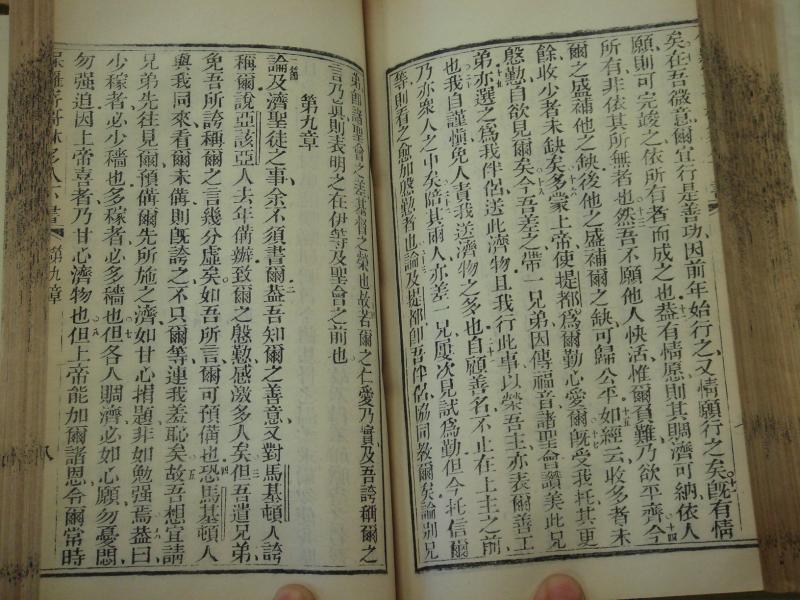 矣在吾微意爾宜行是善功因前年始行之又情願行之矣旣有情
願則可完竣之依所有者而成之也葢有情愿則其賙濟可納依人
所有非依其所無者也然吾不願他人快活惟爾貧難乃欲平齊今
爾之盛補他之缺後他之盛補爾之缺可歸公平如經云收多者未
餘收少者未缺矣多蒙上帝使提都爲爾勤心愛爾旣受我托其更
慇懃自欲見爾矣今吾差之帶一兄弟因傳福音諸聖會讚美此兄
弟亦選之爲我伴侶送此濟物且我行此事以榮吾主亦表爾善工
也我自謹愼免人責我送濟物之多也自顧善名不止在上主之前
乃亦衆人之中矣陪其兩人亦差一兄屢次見試爲勤但今托信爾
等則看之愈加慇懃者也論及提都卽吾伴侶協同教爾矣論別兄
弟卽諸聖會之差基督之榮也故若爾之仁愛乃實及吾誇稱爾之
言乃眞則表明之在伊等及聖會之前也
第九章
論及濟聖徒之事余不須書爾葢吾知爾之善意又對馬基頓人誇
稱爾說亞該亞人去年備辦致爾之慇懃感激多人矣但吾遣兄弟
免吾所誇稱爾之言幾分虛矣如吾所言爾可預備也恐馬基頓人
與我同來看爾未備則旣誇之不只爾等連我羞恥矣故吾想宜請
兄弟先往見爾預備爾先所施之濟如甘心捐題非如勉强焉葢曰
少稼者必少穡也多稼者必多穡也但各人賙濟必如心願勿憂悶
勿强追因上帝喜者乃甘心濟物也但上帝能加爾諸恩令爾常時
第九章
八